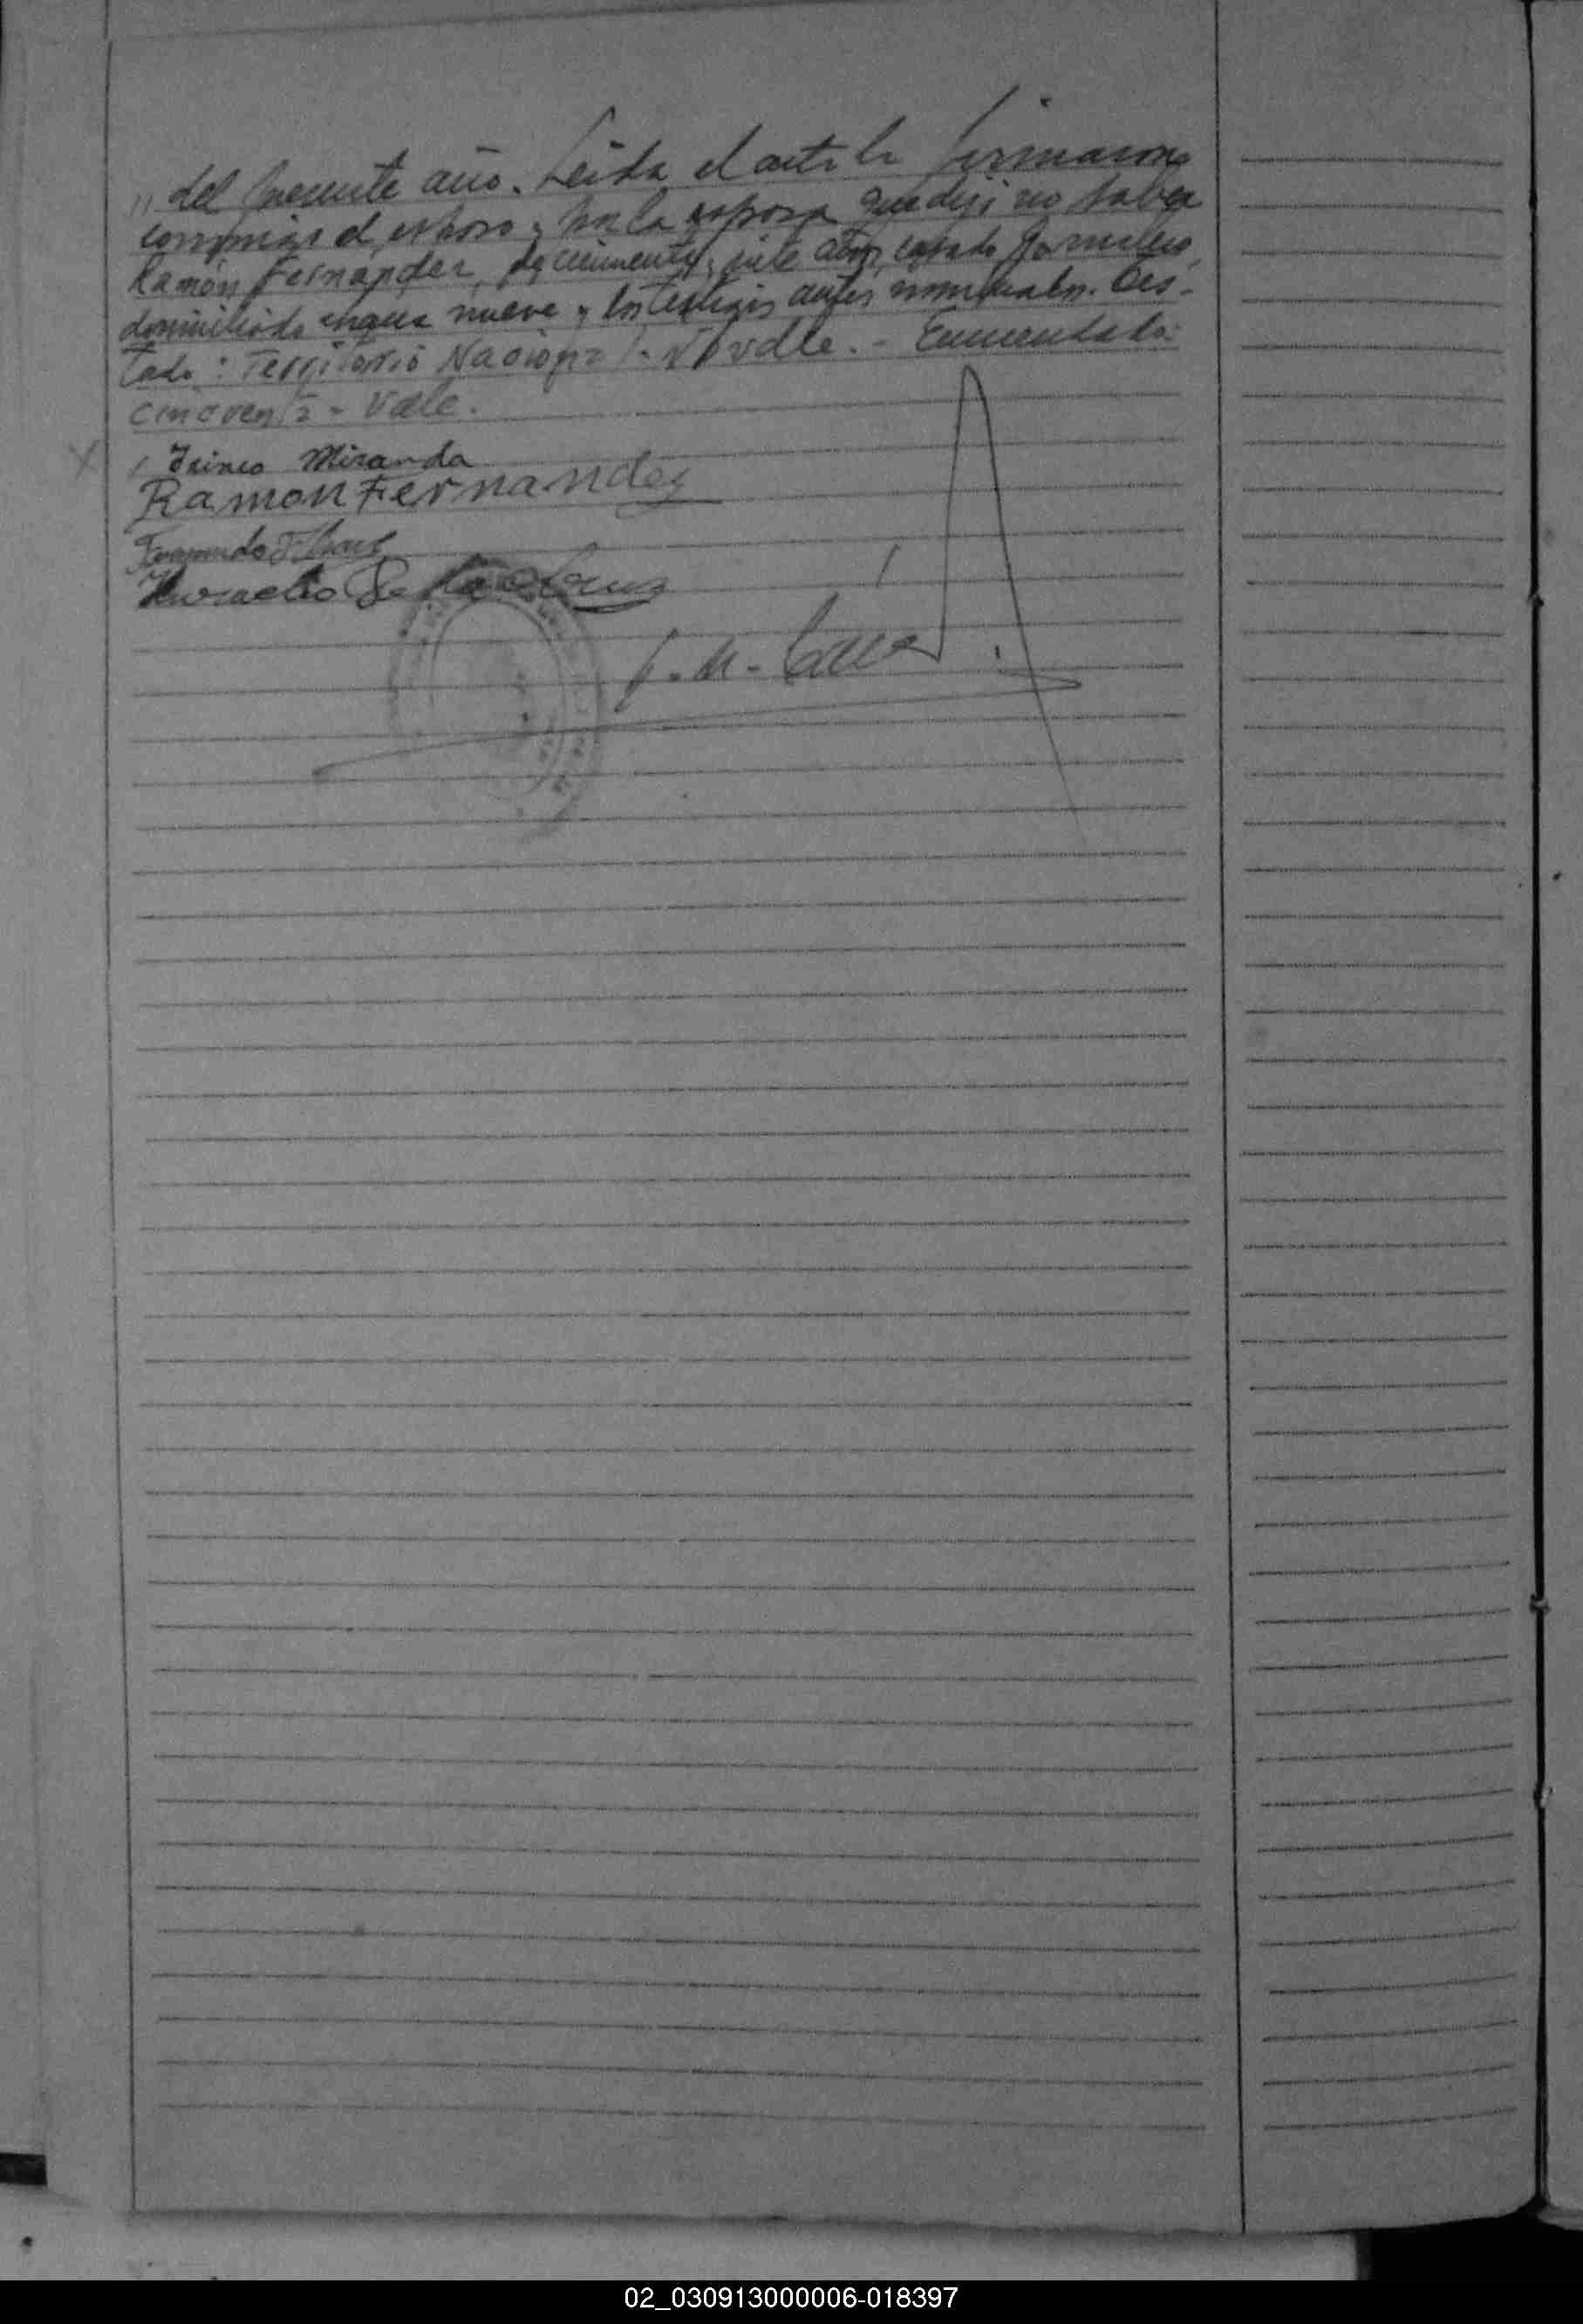 del presente año. Leida el acta la firmaron
conmigo el esposo, por la esposa que dijo no saber
Ramón Fernandez, de cincuenta y siete años, casado, jornalero,
domiciliado chacra nueve y los testigos antes nombrados. Tes-
tado: Territorio Nacional - No vale. - Enmendado:
cincuenta - Vale.
Irineo Miranda
Ramon Fernandez
Horacio de la Cruz
02_030913000006-018397